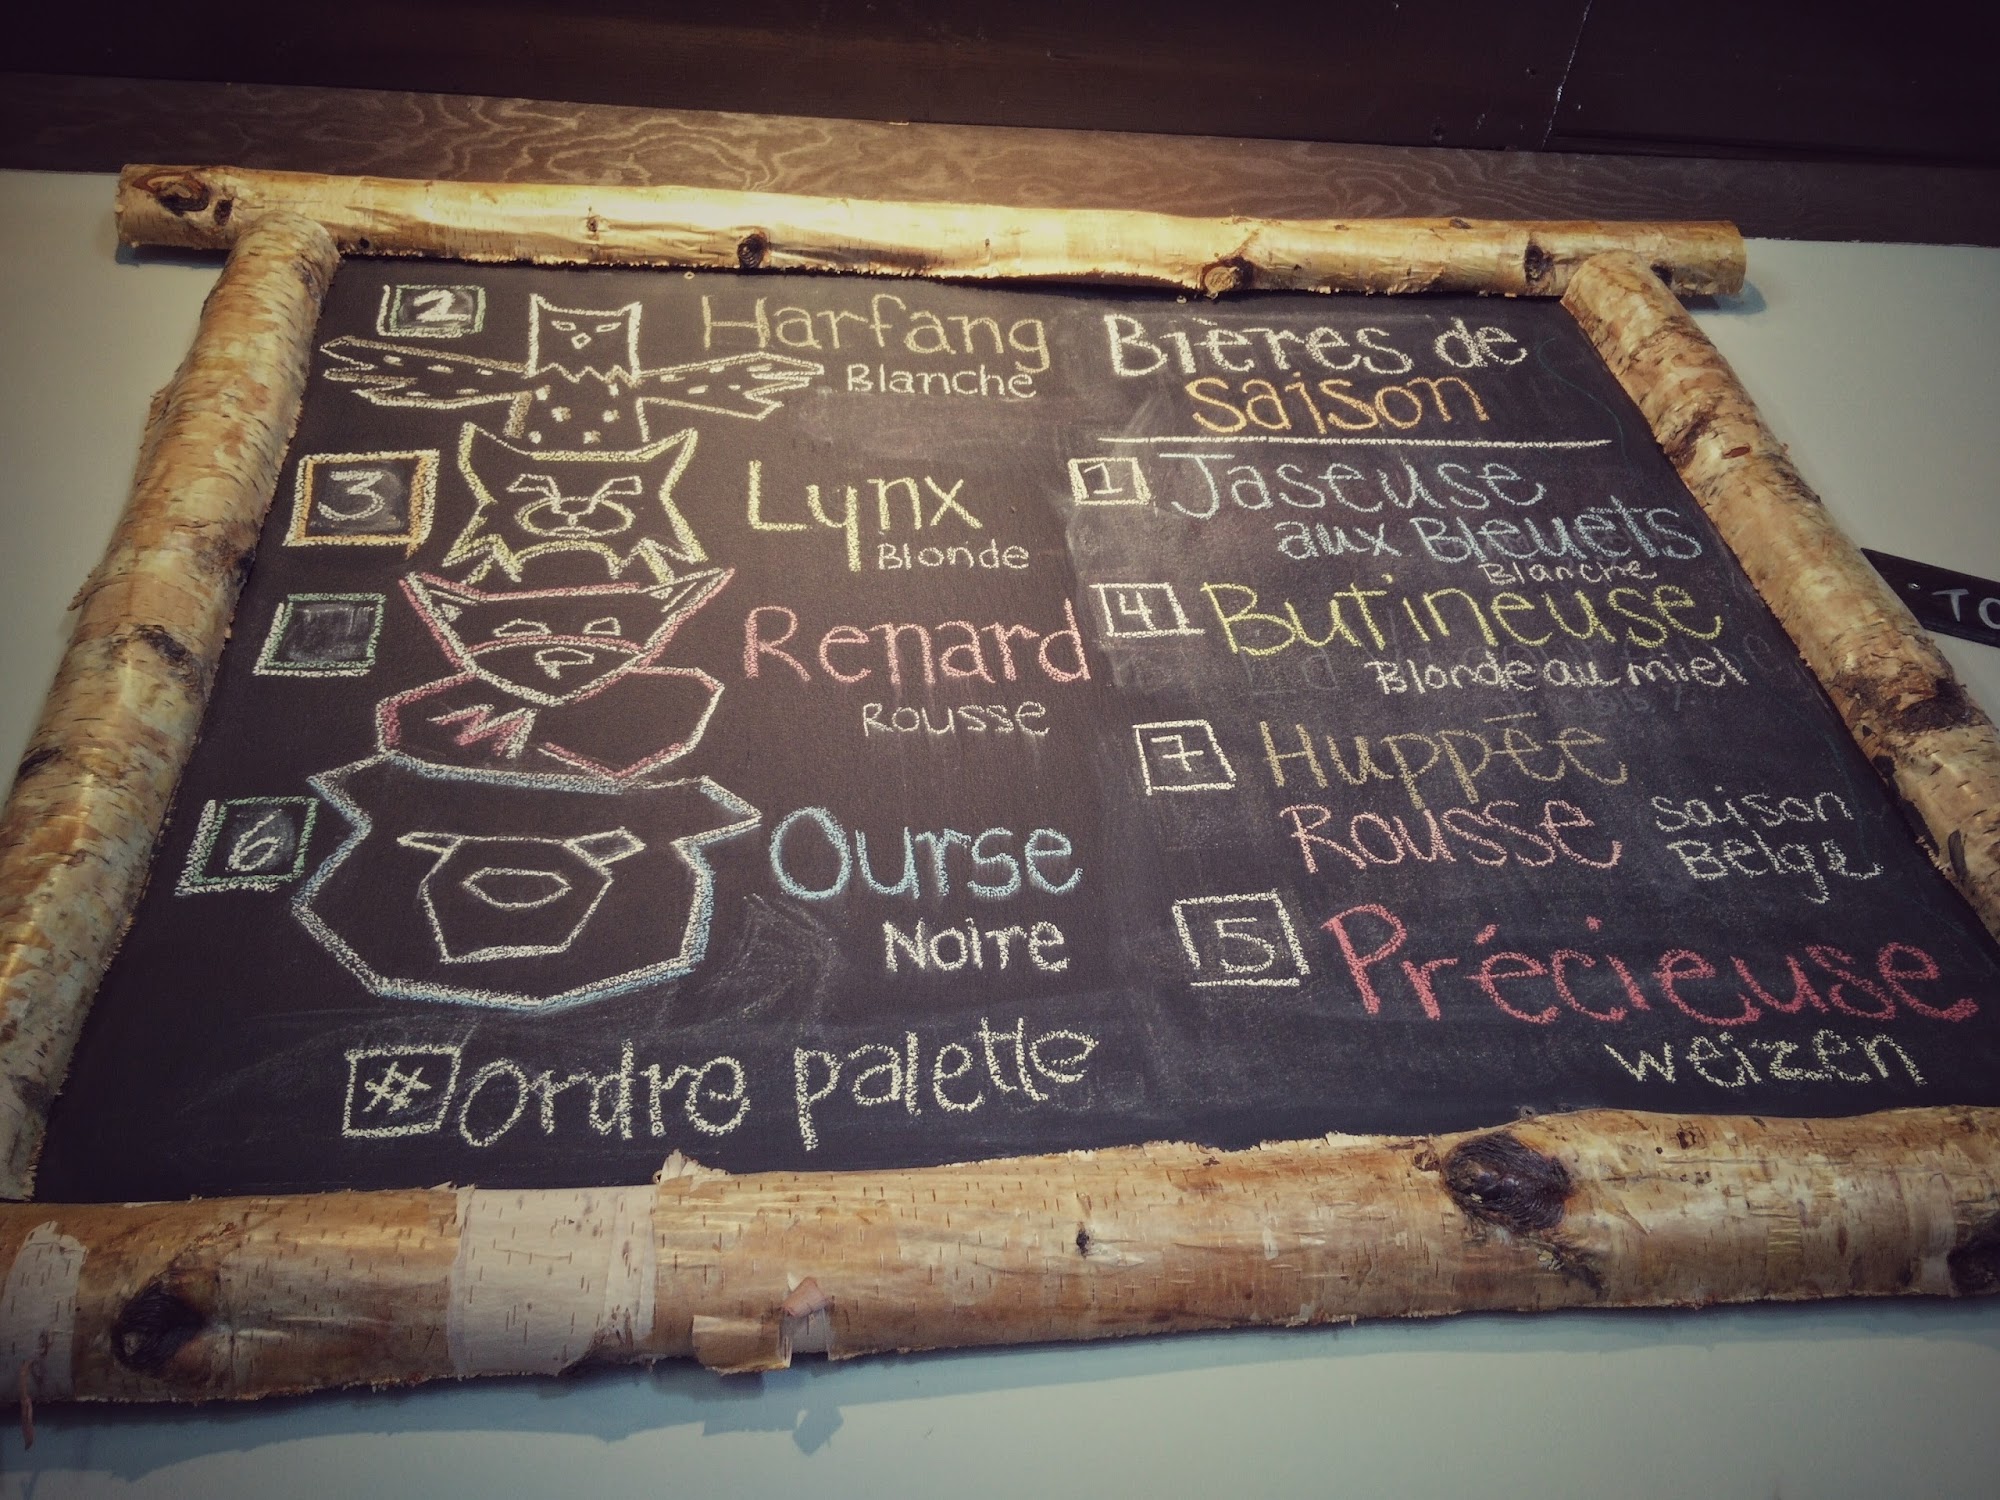 2
Harfang
Blanche
3
Lynx
Blonde
Renard
Rousse
6
Ourse
Noire
# ordre palette
Bières de
saison
1 Jaseuse
aux Bleuets
Blanche
4 Butineuse
Blonde au miel
7 Huppée
Rousse
saison
Belge
5 Précieuse
weizen
TO